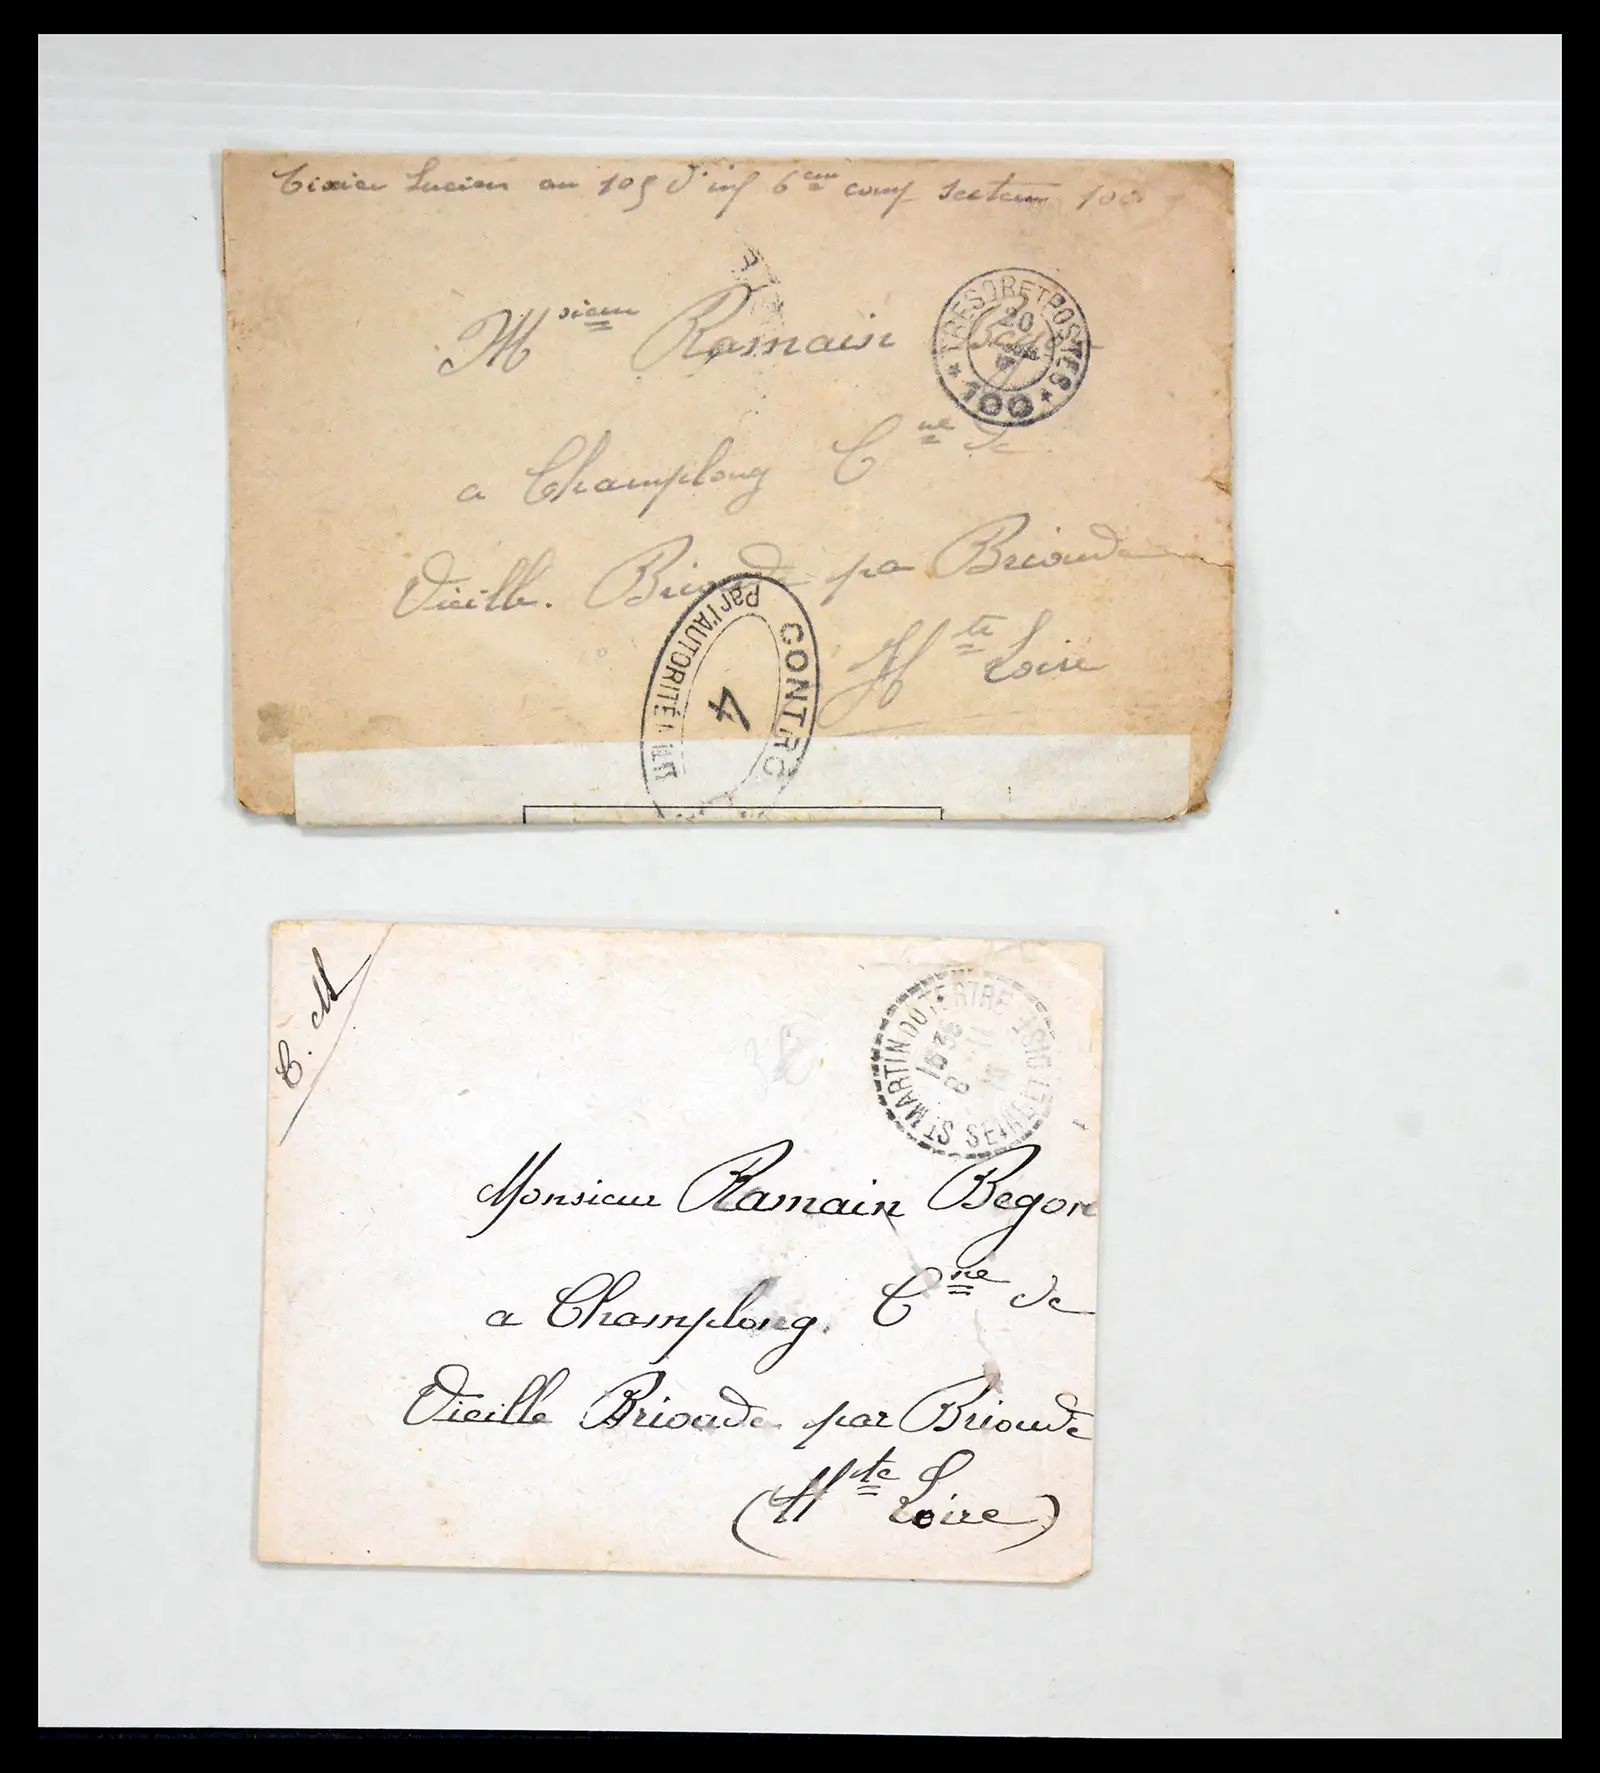 Tixier Lucien au 105 d'inf 6eme comp secteur 100
Msieur Ramain
TRESOR ET POSTES
20
* 100 *
a Champlong Cne de
Vieille. Brioude pa Brioude
Hte Loire
CONTRO
Par l'AUTORITÉ MILIT
4
C. M
ST MARTIN DU TERTRE
SEINE ET OISE
Monsieur Ramain Begon
a Champlong. Cne de
Vieille Brioude par Brioude
(Hte Loire)